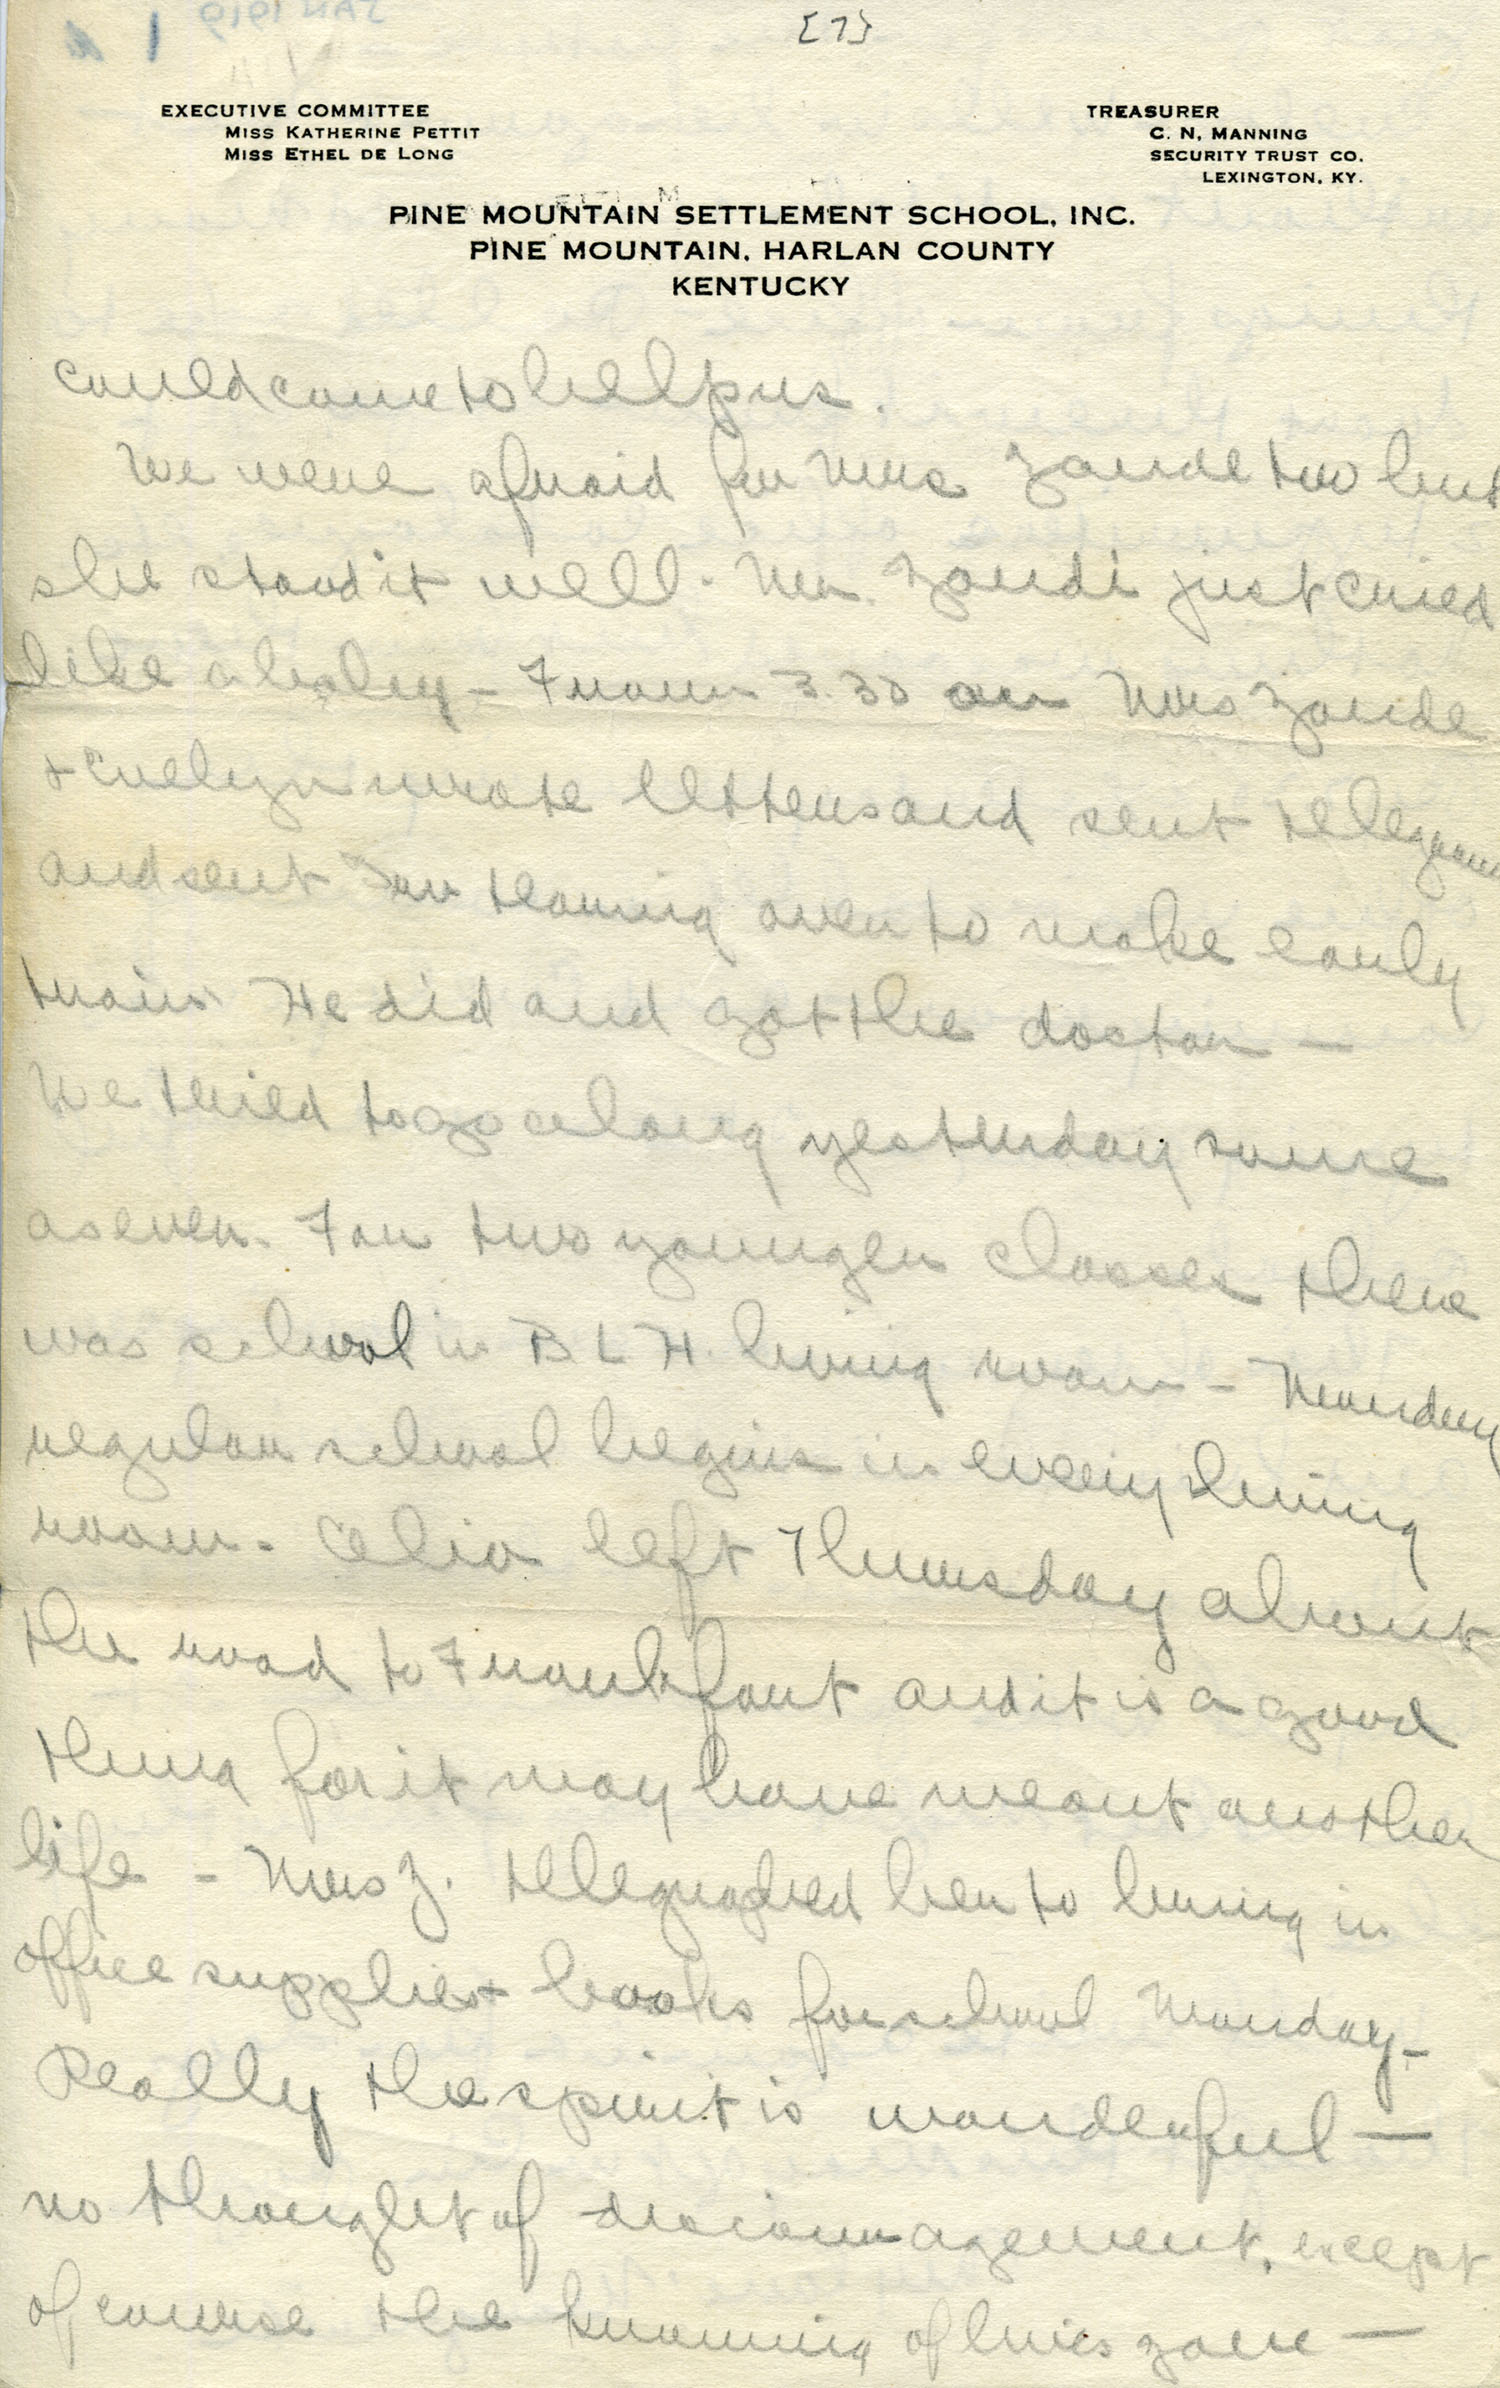 {7}
EXECUTIVE COMMITTEE
MISS KATHERINE PETTIT
MISS ETHEL DE LONG
TREASURER
C. N. MANNING
SECURITY TRUST CO.
LEXINGTON, KY.
PINE MOUNTAIN SETTLEMENT SCHOOL, INC.
PINE MOUNTAIN, HARLAN COUNTY
KENTUCKY
could come to help us.
We were afraid for Mrs Zande too but
she stood it well. Mr. Zande just cried
like a baby - From 3.30 on Mrs Zande
& Evelyn wrote letters and sent telegrams
and sent tearing over to make early
train He did and got the doctor —
We tried to go along yesterday same
as ever. For two younger classes there
was school in B L H. living room - Monday
regular school begins in every living
room. Celia left Thursday about
the road to Frankfort and it is a good
thing for it may have meant another
life - Mrs Z. telegraphed her to bring in
office supplies + books for school Monday -
Really the spirit is wonderful —
no thought of discouragement, except
of course the knowing of